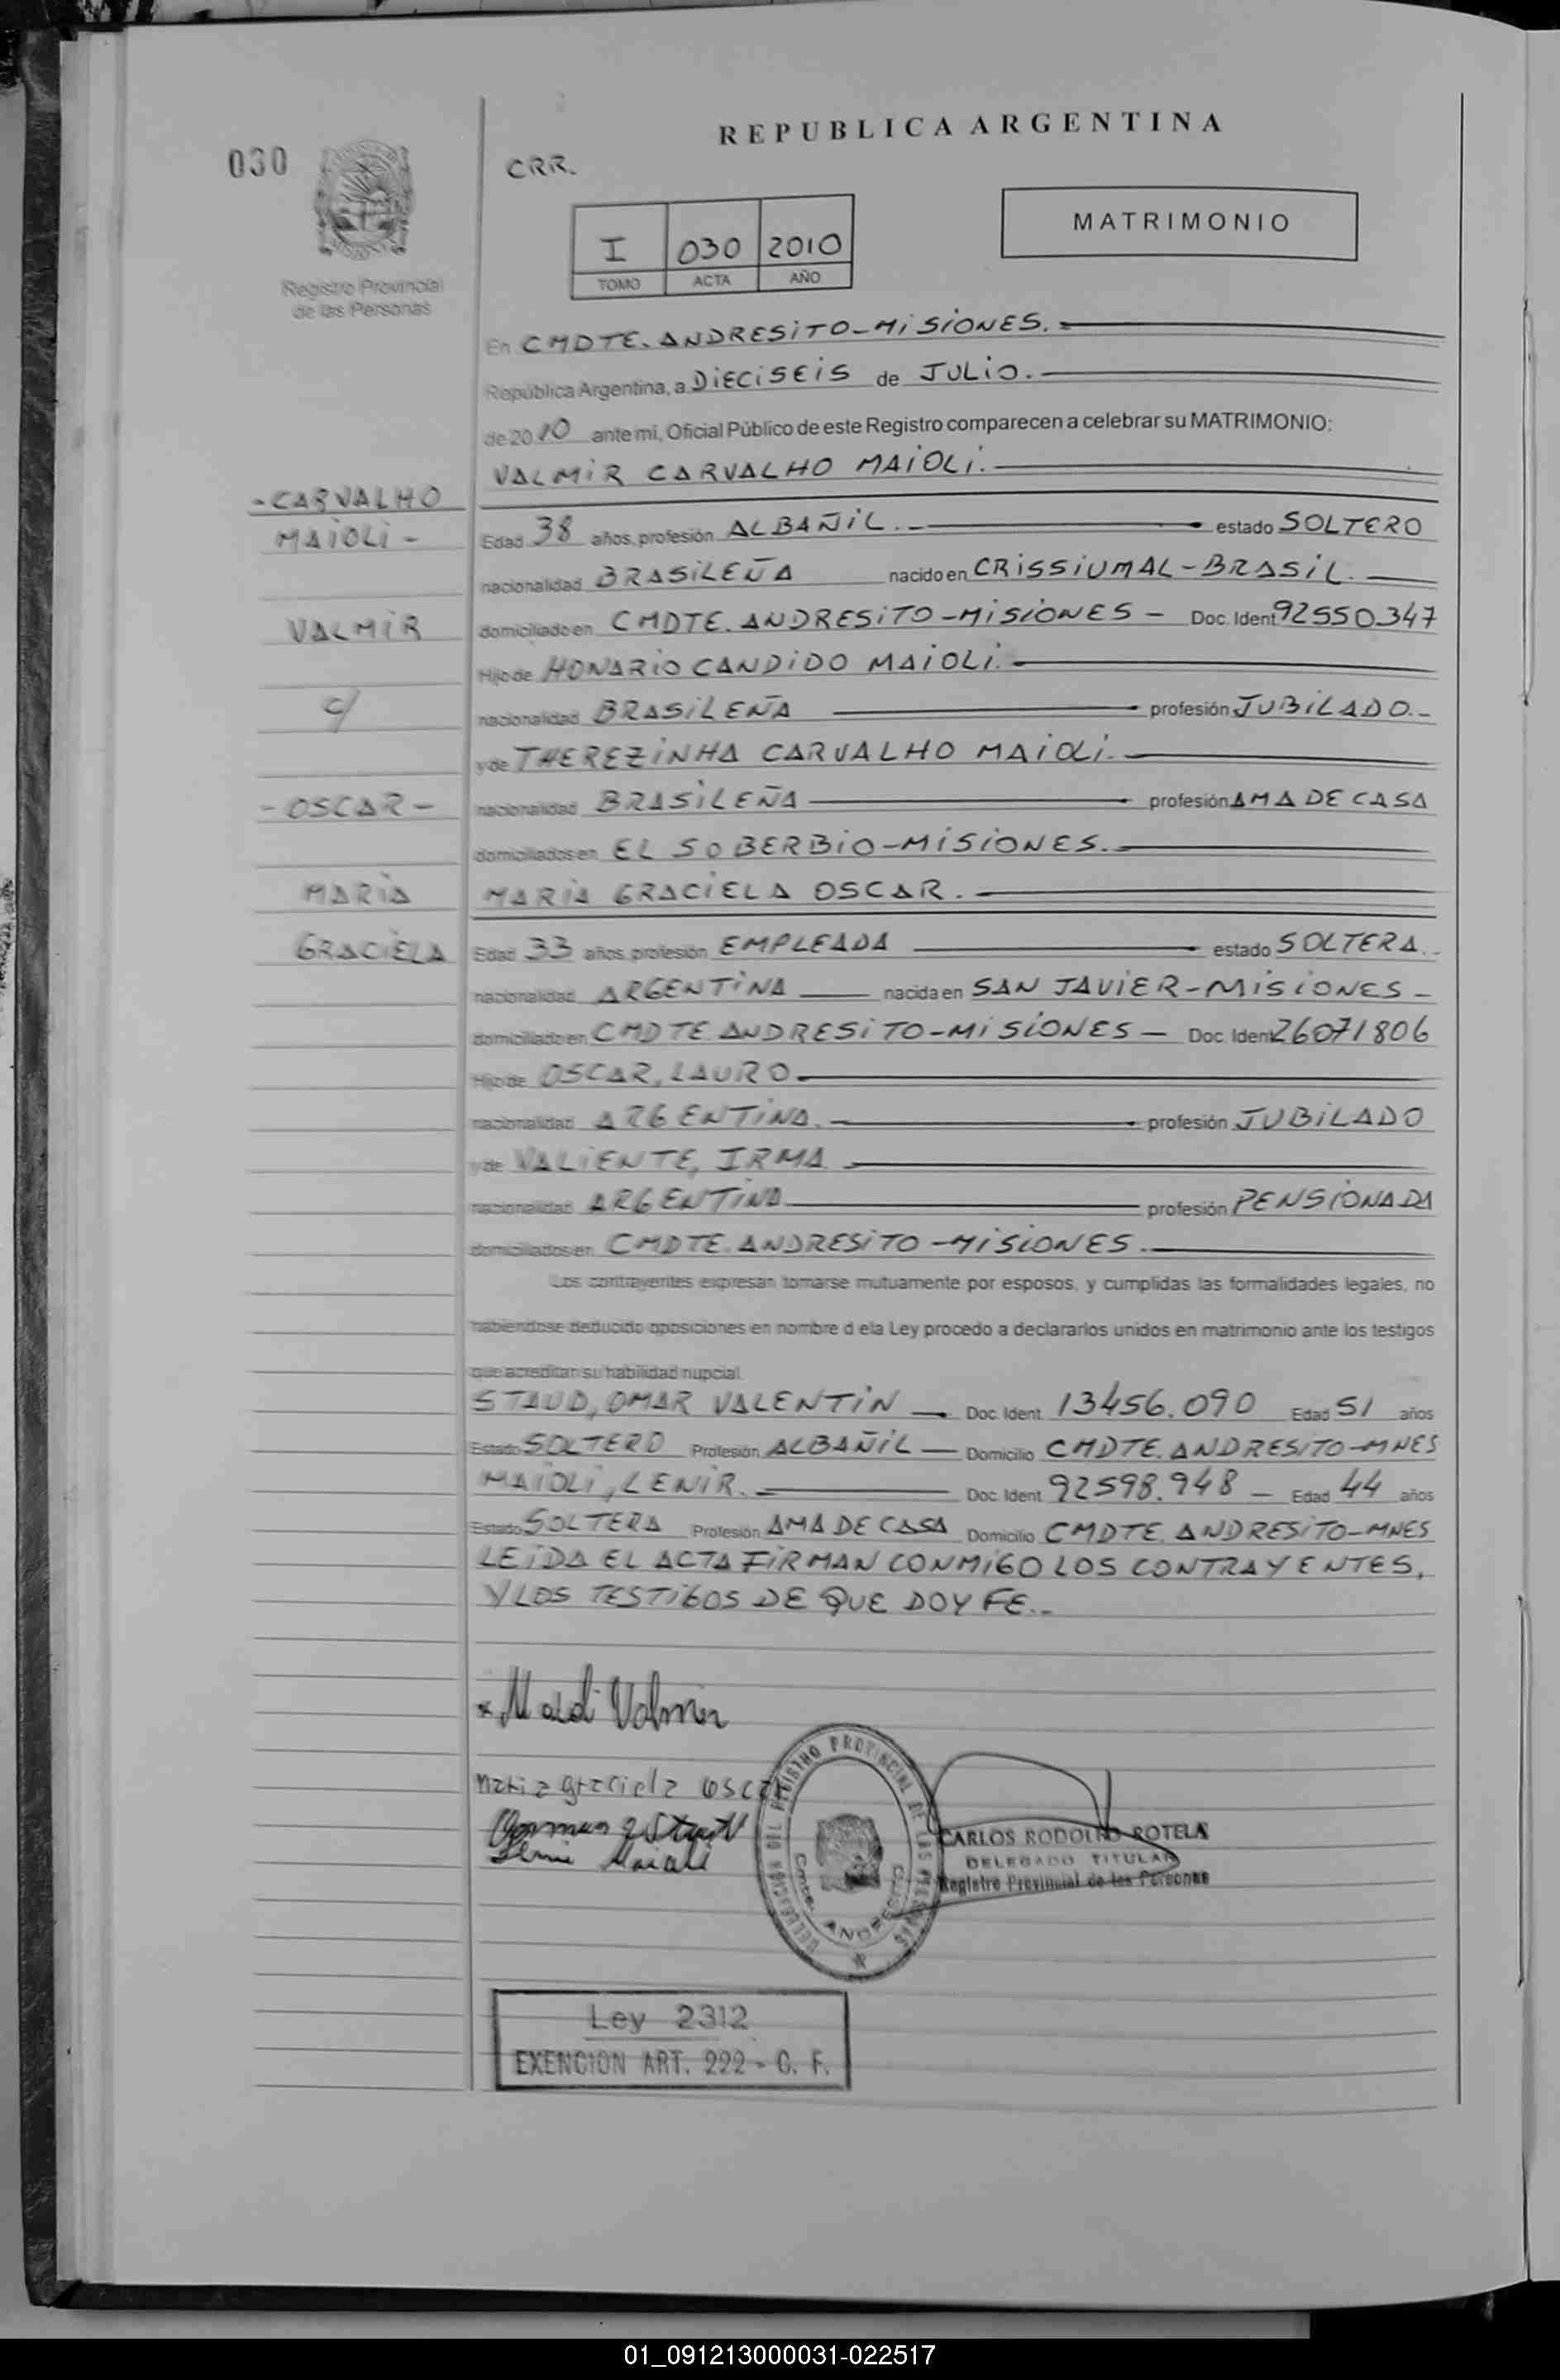 REPUBLICA ARGENTINA
030
CRR.
MATRIMONIO
I 030 2010
TOMO ACTA AÑO
Registro Provincial
de las Personas
En CMDTE. ANDRESITO-MISIONES.
República Argentina, a DIECISEIS de JULIO.
de 2010 ante mi, Oficial Público de este Registro comparecen a celebrar su MATRIMONIO:
VALMIR CARVALHO MAIOLI.
-CARVALHO
MAIOLI-
VALMIR
c/
-OSCAR-
MARIA
GRACIELA
Edad 38 años, profesión ALBAÑIL.- estado SOLTERO
nacionalidad BRASILEÑA nacido en CRISSIUMAL-BRASIL.
domiciliado en CMDTE. ANDRESITO-MISIONES- Doc. Ident 92550347
Hijo de HONARIO CANDIDO MAIOLI.
nacionalidad BRASILEÑA profesión JUBILADO.-
y de THEREZINHA CARVALHO MAIOLI.
nacionalidad BRASILEÑA profesión AMA DE CASA
domiciliados en EL SOBERBIO-MISIONES.
MARIA GRACIELA OSCAR.
Edad 33 años profesión EMPLEADA estado SOLTERA.-
nacionalidad ARGENTINA nacida en SAN JAVIER-MISIONES-
domiciliado en CMDTE ANDRESITO-MISIONES- Doc. Ident 26071806
Hijo de OSCAR, LAURO
nacionalidad ARGENTINA. profesión JUBILADO
y de VALIENTE, IRMA
nacionalidad ARGENTINA profesión PENSIONADA
domiciliados en CMDTE. ANDRESITO-MISIONES.
Los contrayentes expresan tomarse mutuamente por esposos, y cumplidas las formalidades legales, no
habiendose deducido oposiciones en nombre d ela Ley procedo a declararlos unidos en matrimonio ante los testigos
que acreditan su habilidad nupcial
STAUD, OMAR VALENTIN Doc. Ident. 13456.090 Edad 51 años
Estado SOLTERO Profesión ALBAÑIL Domicilio CMDTE. ANDRESITO-MNES
MAIOLI, LENIR. Doc. Ident. 92598.948 - Edad 44 años
Estado SOLTERA Profesión AMA DE CASA Domicilio CMDTE. ANDRESITO-MNES
LEIDA EL ACTA FIRMAN CONMIGO LOS CONTRAYENTES,
Y LOS TESTIGOS DE QUE DOY FE.-
Valmir
Maria graciela oscar
DELEGACION DEL REGISTRO PROVINCIAL DE LAS PERSONAS
Cmte. ANDRESITO
CARLOS RODOLFO ROTELA
DELEGADO TITULAR
Registro Provincial de las Personas
Ley 2312
EXENCION ART. 222 - C. F.
01_091213000031-022517